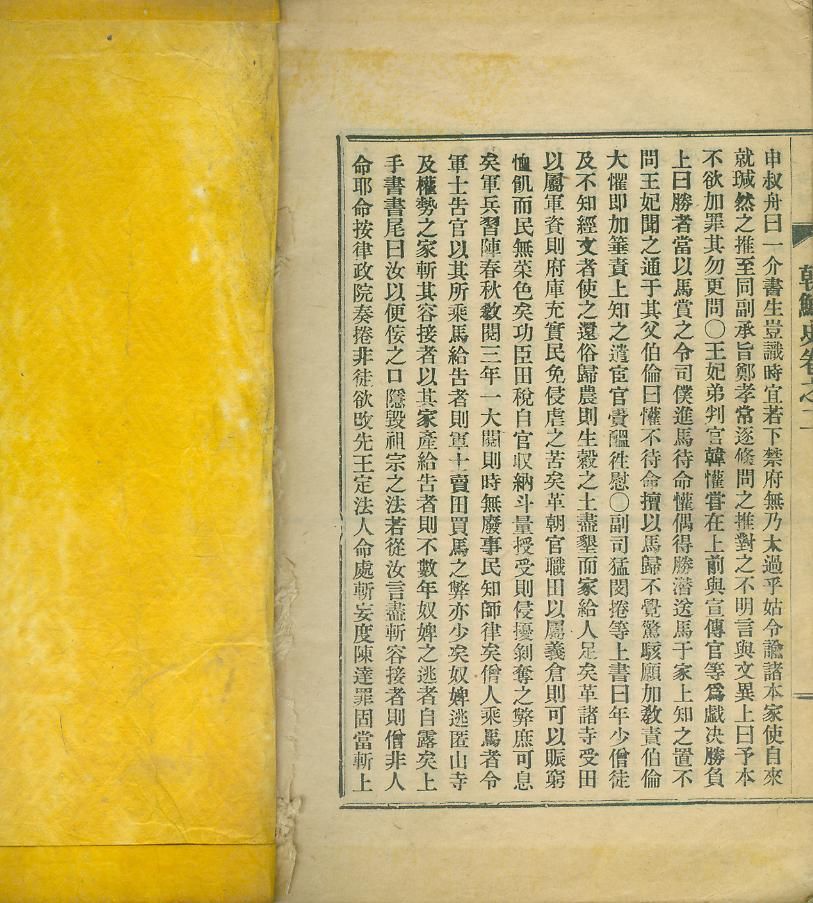 朝鮮史卷之二
申叔舟曰一介書生豈識時宜若下禁府無乃太過乎姑令諭諸本家使自來
就瑊然之推至同副承旨鄭孝常逐條問之推對之不明言與文異上曰予本
不欲加罪其勿更問〇王妃弟判官韓懽嘗在上前與宣傳官等爲戲决勝負
上曰勝者當以馬賞之令司僕進馬待命懽偶得勝潛送馬于家上知之置不
問王妃聞之通于其父伯倫曰懽不待命擅以馬歸不覺驚駭願加敎責伯倫
大懼即加箠責上知之遣宦官賫醞徃慰〇副司猛閔捲等上書曰年少僧徒
及不知經文者使之還俗歸農則生穀之土盡墾而家給人足矣革諸寺受田
以屬軍資則府庫充實民免侵虐之苦矣革朝官職田以屬義倉則可以賑窮
恤飢而民無菜色矣功臣田稅自官収納斗量授受則侵擾剝奪之弊庶可息
矣軍兵習陣春秋敎閱三年一大閱則時無廢事民知師律矣僧人乘馬者令
軍士告官以其所乘馬給告者則軍士賣田買馬之弊亦少矣奴婢逃匿山寺
及權勢之家斬其容接者以其家產給告者則不數年奴婢之逃者自露矣上
手書書尾曰汝以便侫之口隱毀祖宗之法若從汝言盡斬容接者則僧非人
命耶命按律政院奏捲非徒欲改先王定法人命處斬妄度陳達罪固當斬上